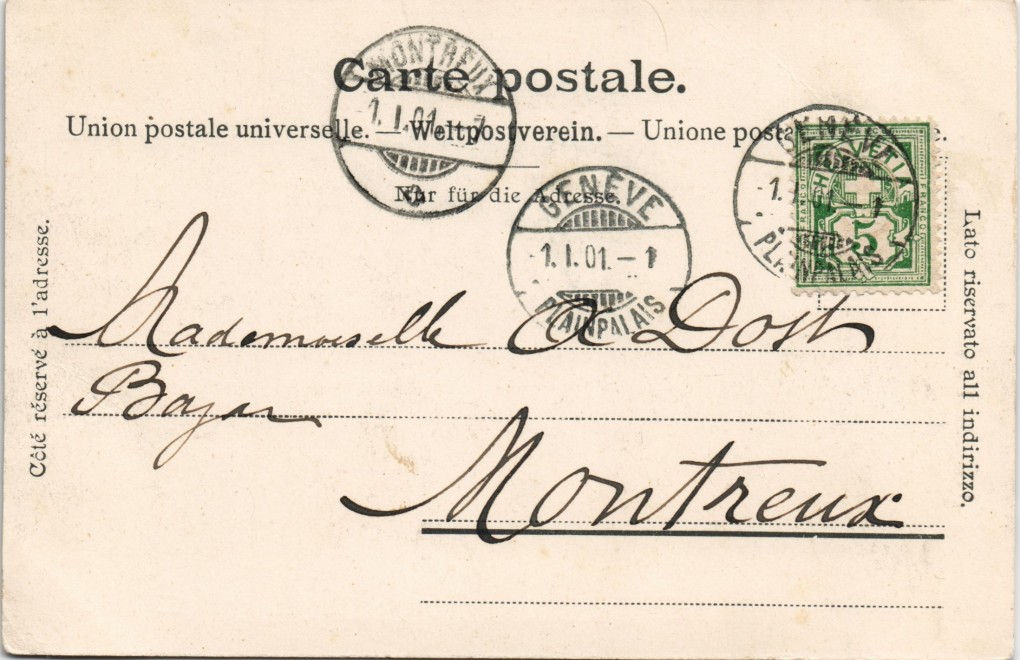 Carte postale.
MONTREUX
-1.I.01.-7
Union postale universelle. — Weltpostverein. — Unione posta
Nur für die Adresse.
GENÈVE
-1.I.01.-1
PLAINPALAIS
GENÈVE
-1.I.01.-1
PLAINPALAIS
HELVETIA
FRANCO
5
Côté réservé à l'adresse.
Lato riservato all indirizzo.
Mademoiselle A Dost
Montreux